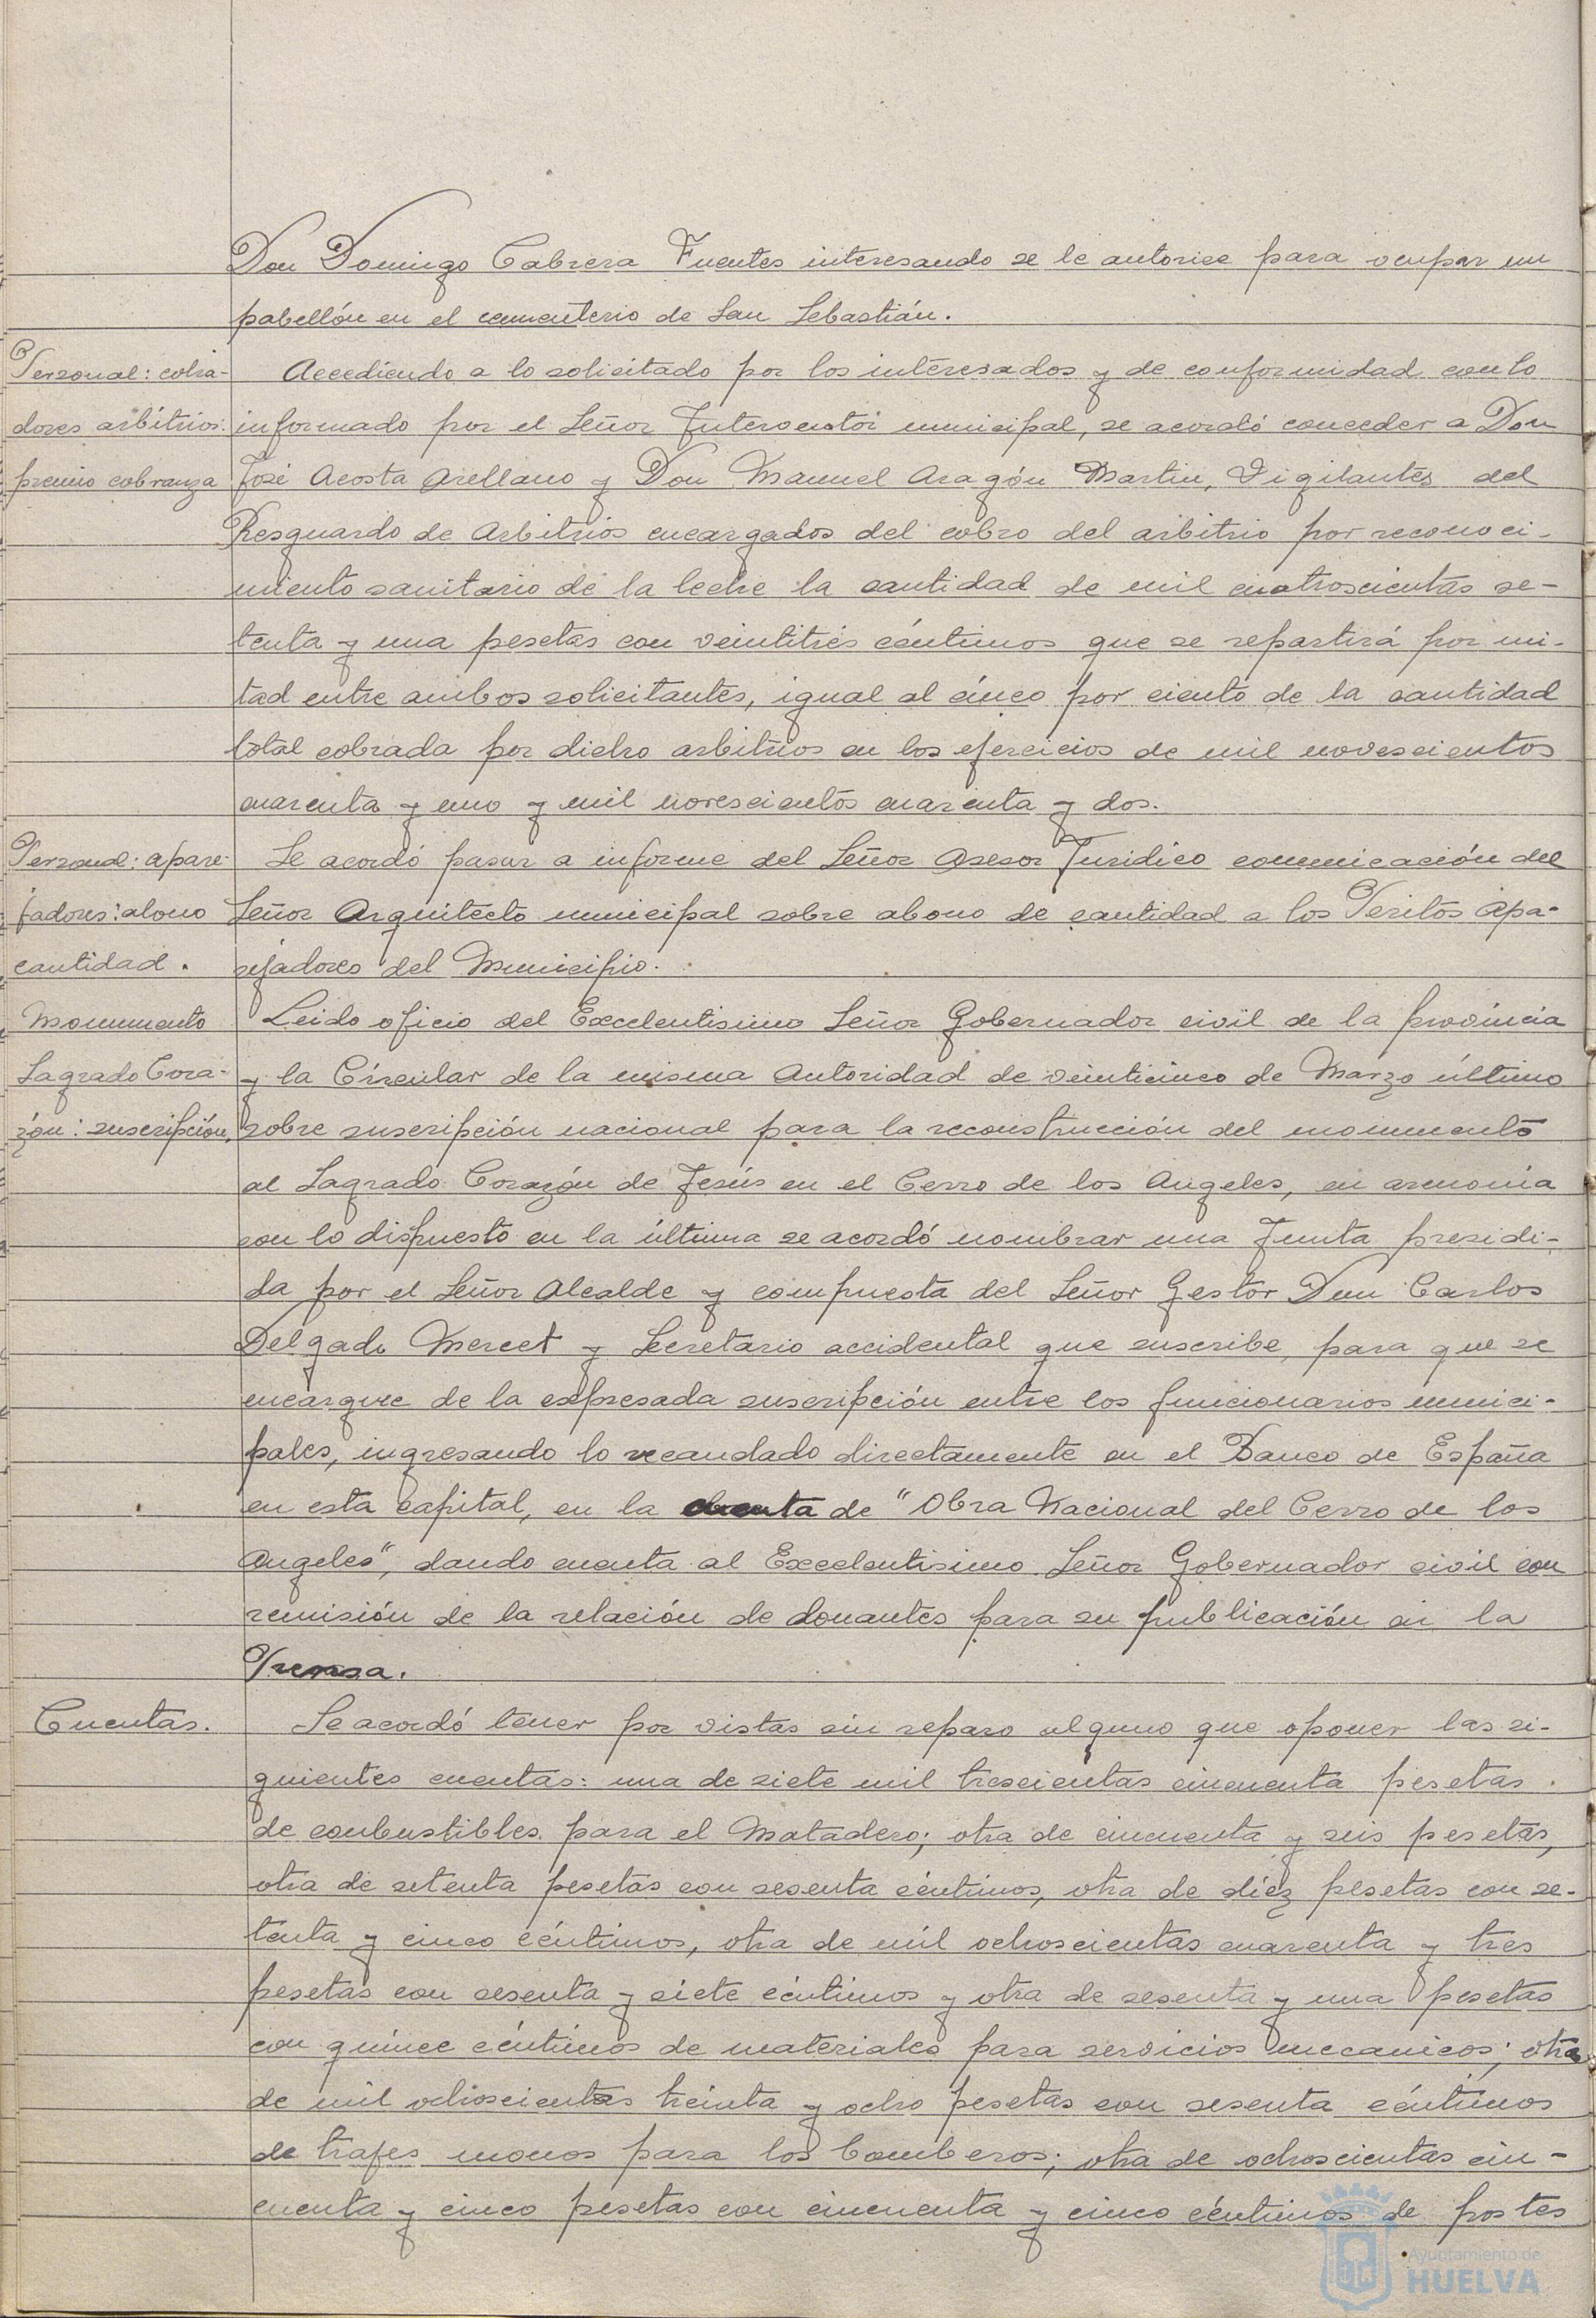 Don Domingo Cabrera Fuentes interesando se le autorice para ocupar un
pabellón en el cementerio de San Sebastián.
Personal: cobra-
dores arbitrios:
premio cobranza
Accediendo a lo solicitado por los interesados y de conformidad con lo
informado por el Señor Interventor municipal, se acordó conceder a Don
José Acosta Arellano y Don Manuel Aragón Martin, Vigilantes del
Resguardo de Arbitrios encargados del cobro del arbitrio por reconoci-
miento sanitario de la leche la cantidad de mil cuatroscientas se-
tenta y una pesetas con veintitrés céntimos que se repartirá por mi-
tad entre ambos solicitantes, igual al cinco por ciento de la cantidad
total cobrada por dicho arbitrios en los ejercicios de mil novescientos
cuarenta y uno y mil novescientos cuarenta y dos.
Personal: apare-
jadores: abono
cantidad.
Se acordó pasar a informe del Señor Asesor Juridico comunicación del
Señor Arquitecto municipal sobre abono de cantidad a los Peritos Apa-
rejadores del Municipio.
Monumento
Sagrado Cora-
zón: suscripción.
Leido oficio del Excelentisimo Señor Gobernador civil de la provincia
y la Circular de la misma Autoridad de veinticinco de Marzo último
sobre suscripción nacional para la reconstrucción del monumento
al Sagrado Corazón de Jesús en el Cerro de los Angeles, en armonia
con lo dispuesto en la última se acordó nombrar una Junta presidi-
da por el Señor Alcalde y compuesta del Señor Gestor Don Carlos
Delgado Mercet y Secretario accidental que suscribe, para que se
encargue de la expresada suscripción entre los funcionarios munici-
pales, ingresando lo recaudado directamente en el Banco de España
en esta capital, en la cuenta de "Obra Nacional del Cerro de los
Angeles", dando cuenta al Excelentisimo Señor Gobernador civil con
remisión de la relación de donantes para su publicación en la
Prensa.
Cuentas.
Se acordó tener por vistas sin reparo alguno que oponer las si-
guientes cuentas: una de siete mil trescientas cincuenta pesetas
de combustibles para el Matadero; otra de cincuenta y seis pesetas,
otra de setenta pesetas con sesenta céntimos, otra de diez pesetas con se-
tenta y cinco céntimos, otra de mil ochoscientas cuarenta y tres
pesetas con sesenta y siete céntimos y otra de sesenta y una pesetas
con quince céntimos de materiales para servicios mecanicos; otra
de mil ochoscientas treinta y ocho pesetas con sesenta céntimos
de trajes monos para los bomberos; otra de ochoscientas cin-
cuenta y cinco pesetas con cincuenta y cinco céntimos de postes
Ayuntamiento de
HUELVA